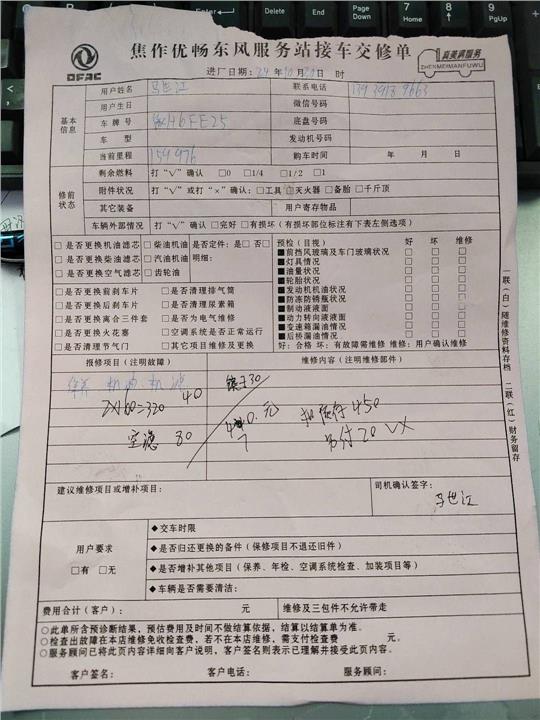 DFAC
焦作优畅东风服务站接车交修单
真美满服务
ZHENMEIMANFUWU
进厂日期：24 年 10 月 20 日 时
基本信息
用户姓名 马世江 联系电话 139 3918 9663
用户生日 微信号码
车牌号 H6FE25 底盘号码
车型 发动机号码
当前里程 154976 购车时间 年 月 日
修前状态
剩余燃料 打“√”确认 □0 □1/4 □1/2 □1
附件状况 打“√”或打“×”确认：□工具 □灭火器 □备胎 □千斤顶
其它装备 用户寄存物品
车辆外部情况 打“√”确认 □完好 □有损坏（有损坏部位标注有下表左侧选项）
□是否更换机油滤芯 □柴油机油 是否定件：是□ 否□
□是否更换柴油滤芯 □汽油机油 明细：
□是否更换空气滤芯 □齿轮油
□是否更换前刹车片 □是否清理排气筒
□是否更换后刹车片 □是否清理尿素箱
□是否更换离合三件套 □是否为电气维修
□是否更换火花塞 □空调系统是否正常运行
□是否清理节气门 □其它项目维修及更换
预检（目视） 好 坏 维修
■前挡风玻璃及车门玻璃状况 □ □ □
■灯具情况 □ □ □
■油量状况 □ □ □
■轮胎状况 □ □ □
■发动机机油状况 □ □ □
■防冻防锈瓶状况 □ □ □
■制动液液面 □ □ □
■动力转向液液面 □ □ □
■变速箱漏油情况 □ □ □
■后桥漏油情况 □ □ □
好：合格 坏：有故障需维修 维修：用户确认维修
报修项目（注明故障） 维修内容（注明维修部件）
保养 机油 机滤
40 30
2X160=320
元 450
空滤 80
另付20 VX
建议维修项目或增补项目：
司机确认签字：
马世江
用户要求
□有 □无
◆交车时限
◆是否归还更换的备件（保修项目不退还旧件）
◆是否增补其他项目（保养、年检、空调系统检查、加装项目等）
◆车辆是否需要清洁：
费用合计（客户）： 元 维修及三包件不允许带走
○此单所含预诊断结果，预估费用及时间不做结算依据，结算以结算单为准。
○检查出故障在本店维修免收检查费，若不在本店维修，需支付检查费 元。
○服务顾问已将此页内容详细向客户说明，客户签名则表示已理解并接受此页内容。
客户签名： 客户电话： 服务顾问：
一联（白）随维修资料存档 二联（红）财务留存